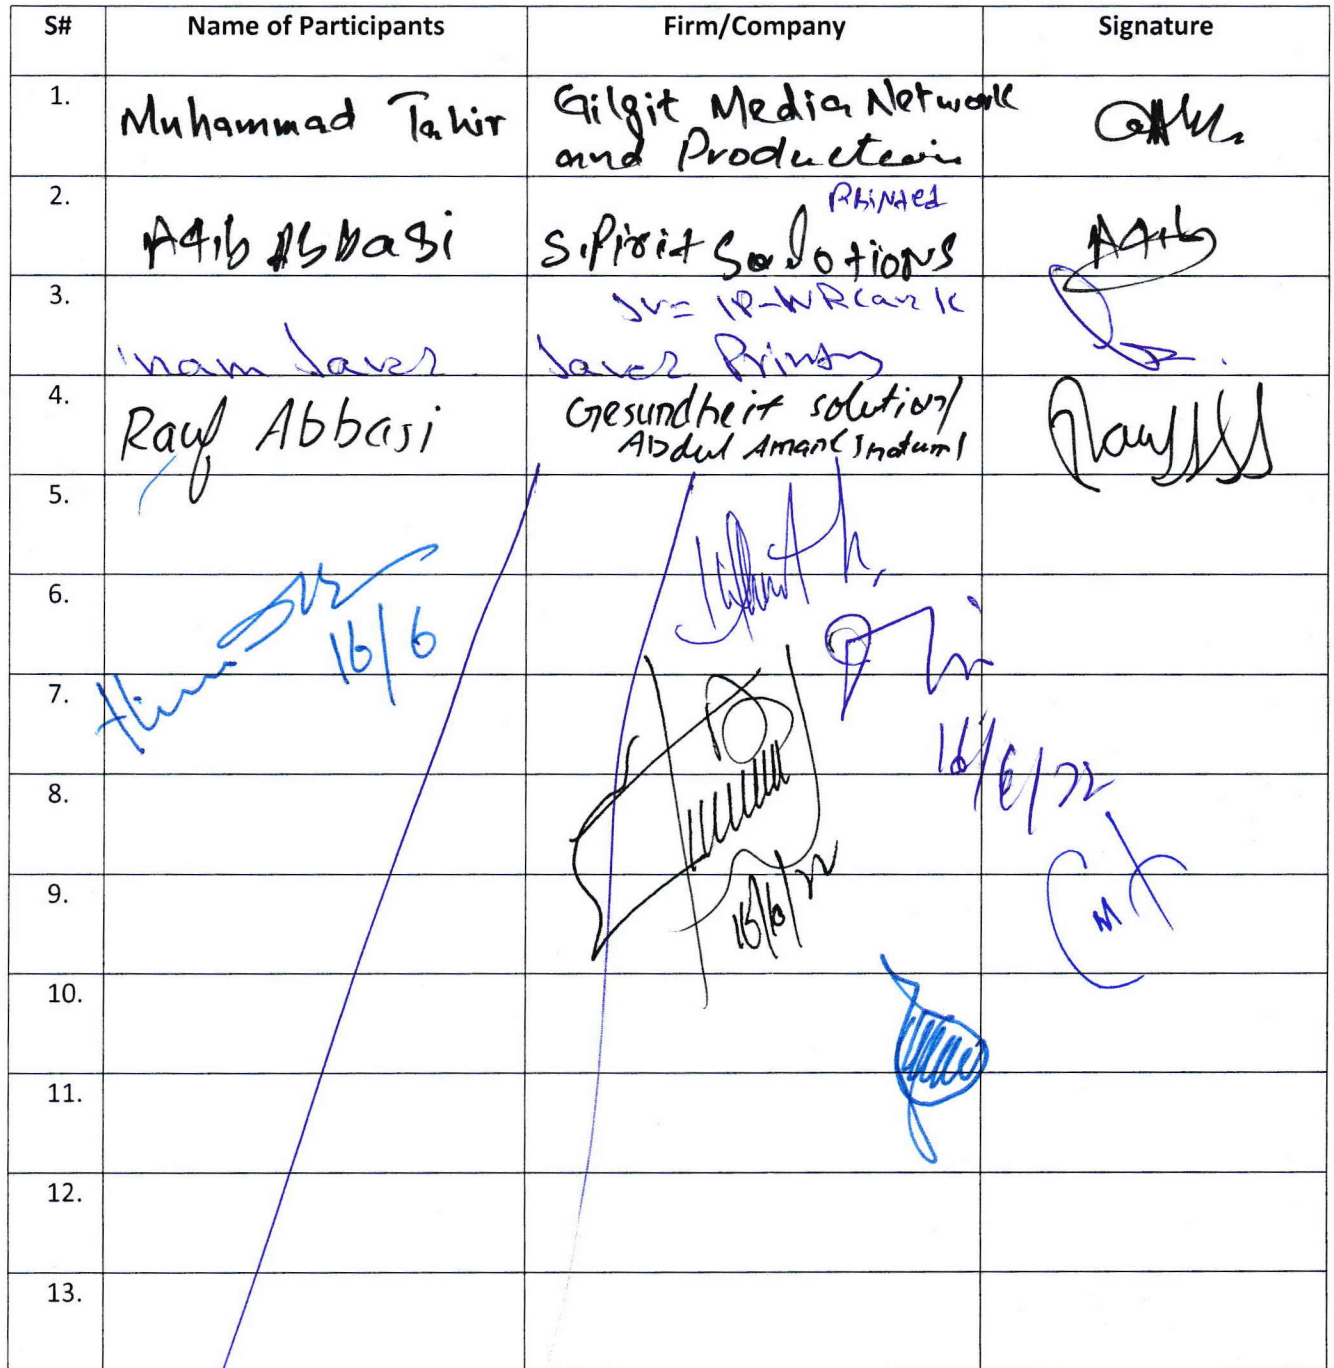 S# Name of Participants Firm/Company Signature
1. Muhammad Tahir Gilgit Media Network
and Production
Printed
2. Aqib Abbasi S.Pirit Solotions
3. JV=
Inam Javed Javed
4. Rauf Abbasi Gesundheit solution/
Abdul Aman
5.
6.
16/6
7.
16/6/22
8.
9.
16/6/22
10.
11.
12.
13.